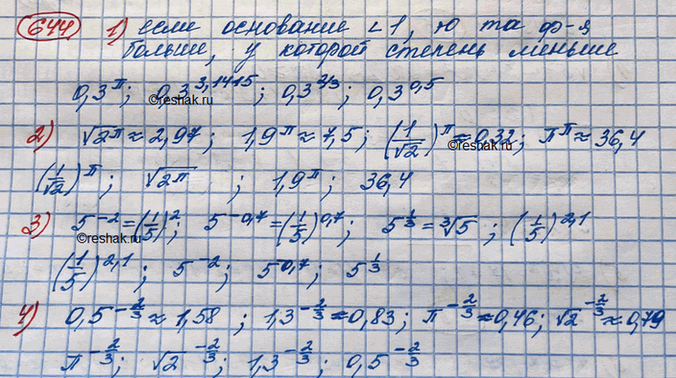 644 1) если основание < 1, то та ф-я
больше, у которой степень меньше
0,3^π; 0,3^3,1415; 0,3^2/3; 0,3^0,5
©reshak.ru
2) √2^π ≈ 2,97; 1,9^π ≈ 7,5; (1/√2)^π ≈ 0,32; π^π ≈ 36,4
©reshak.ru
(1/√2)^π; √2^π; 1,9^π; 36,4
3) 5^-2 = (1/5)^2; 5^-0,7 = (1/5)^0,7; 5^1/3 = ∛5; (1/5)^2,1
©reshak.ru
(1/5)^2,1; 5^-2; 5^-0,7; 5^1/3
4) 0,5^-2/3 ≈ 1,58; 1,3^-2/3 ≈ 0,83; π^-2/3 ≈ 0,46; √2^-2/3 ≈ 0,79
π^-2/3; √2^-2/3; 1,3^-2/3; 0,5^-2/3